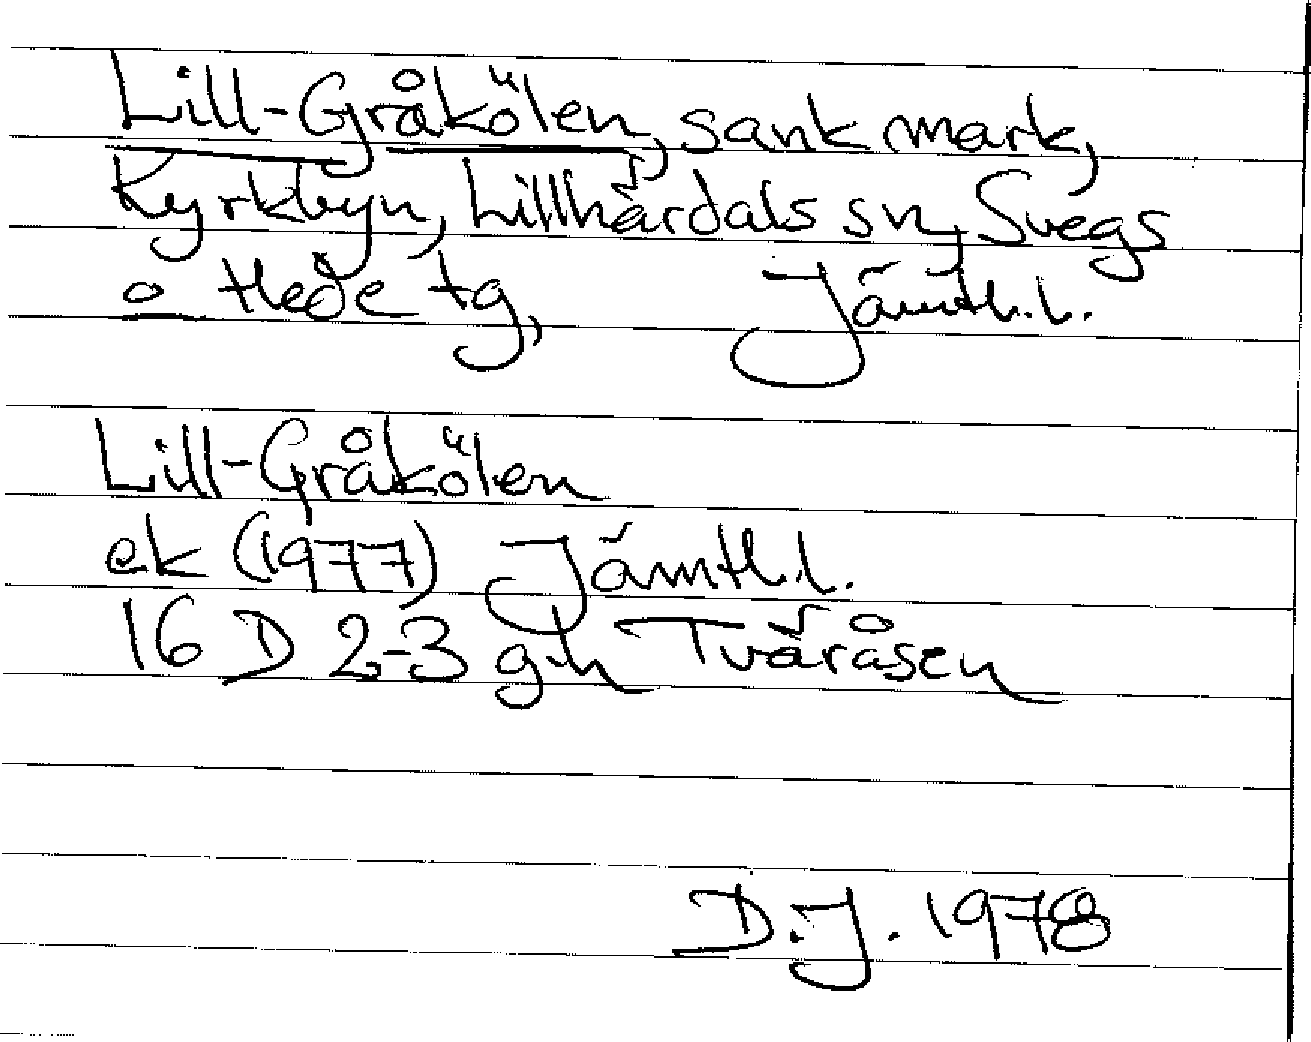 Lill-Gråkölen, sank mark,
Kyrkbyn, Lillhärdals sn, Svegs
o Hede tg, Jämtl. l.
Lill-Gråkölen
ek (1977) Jämtl. l.
16 D 2-3 g-h Tvåråsen
D.J. 1978